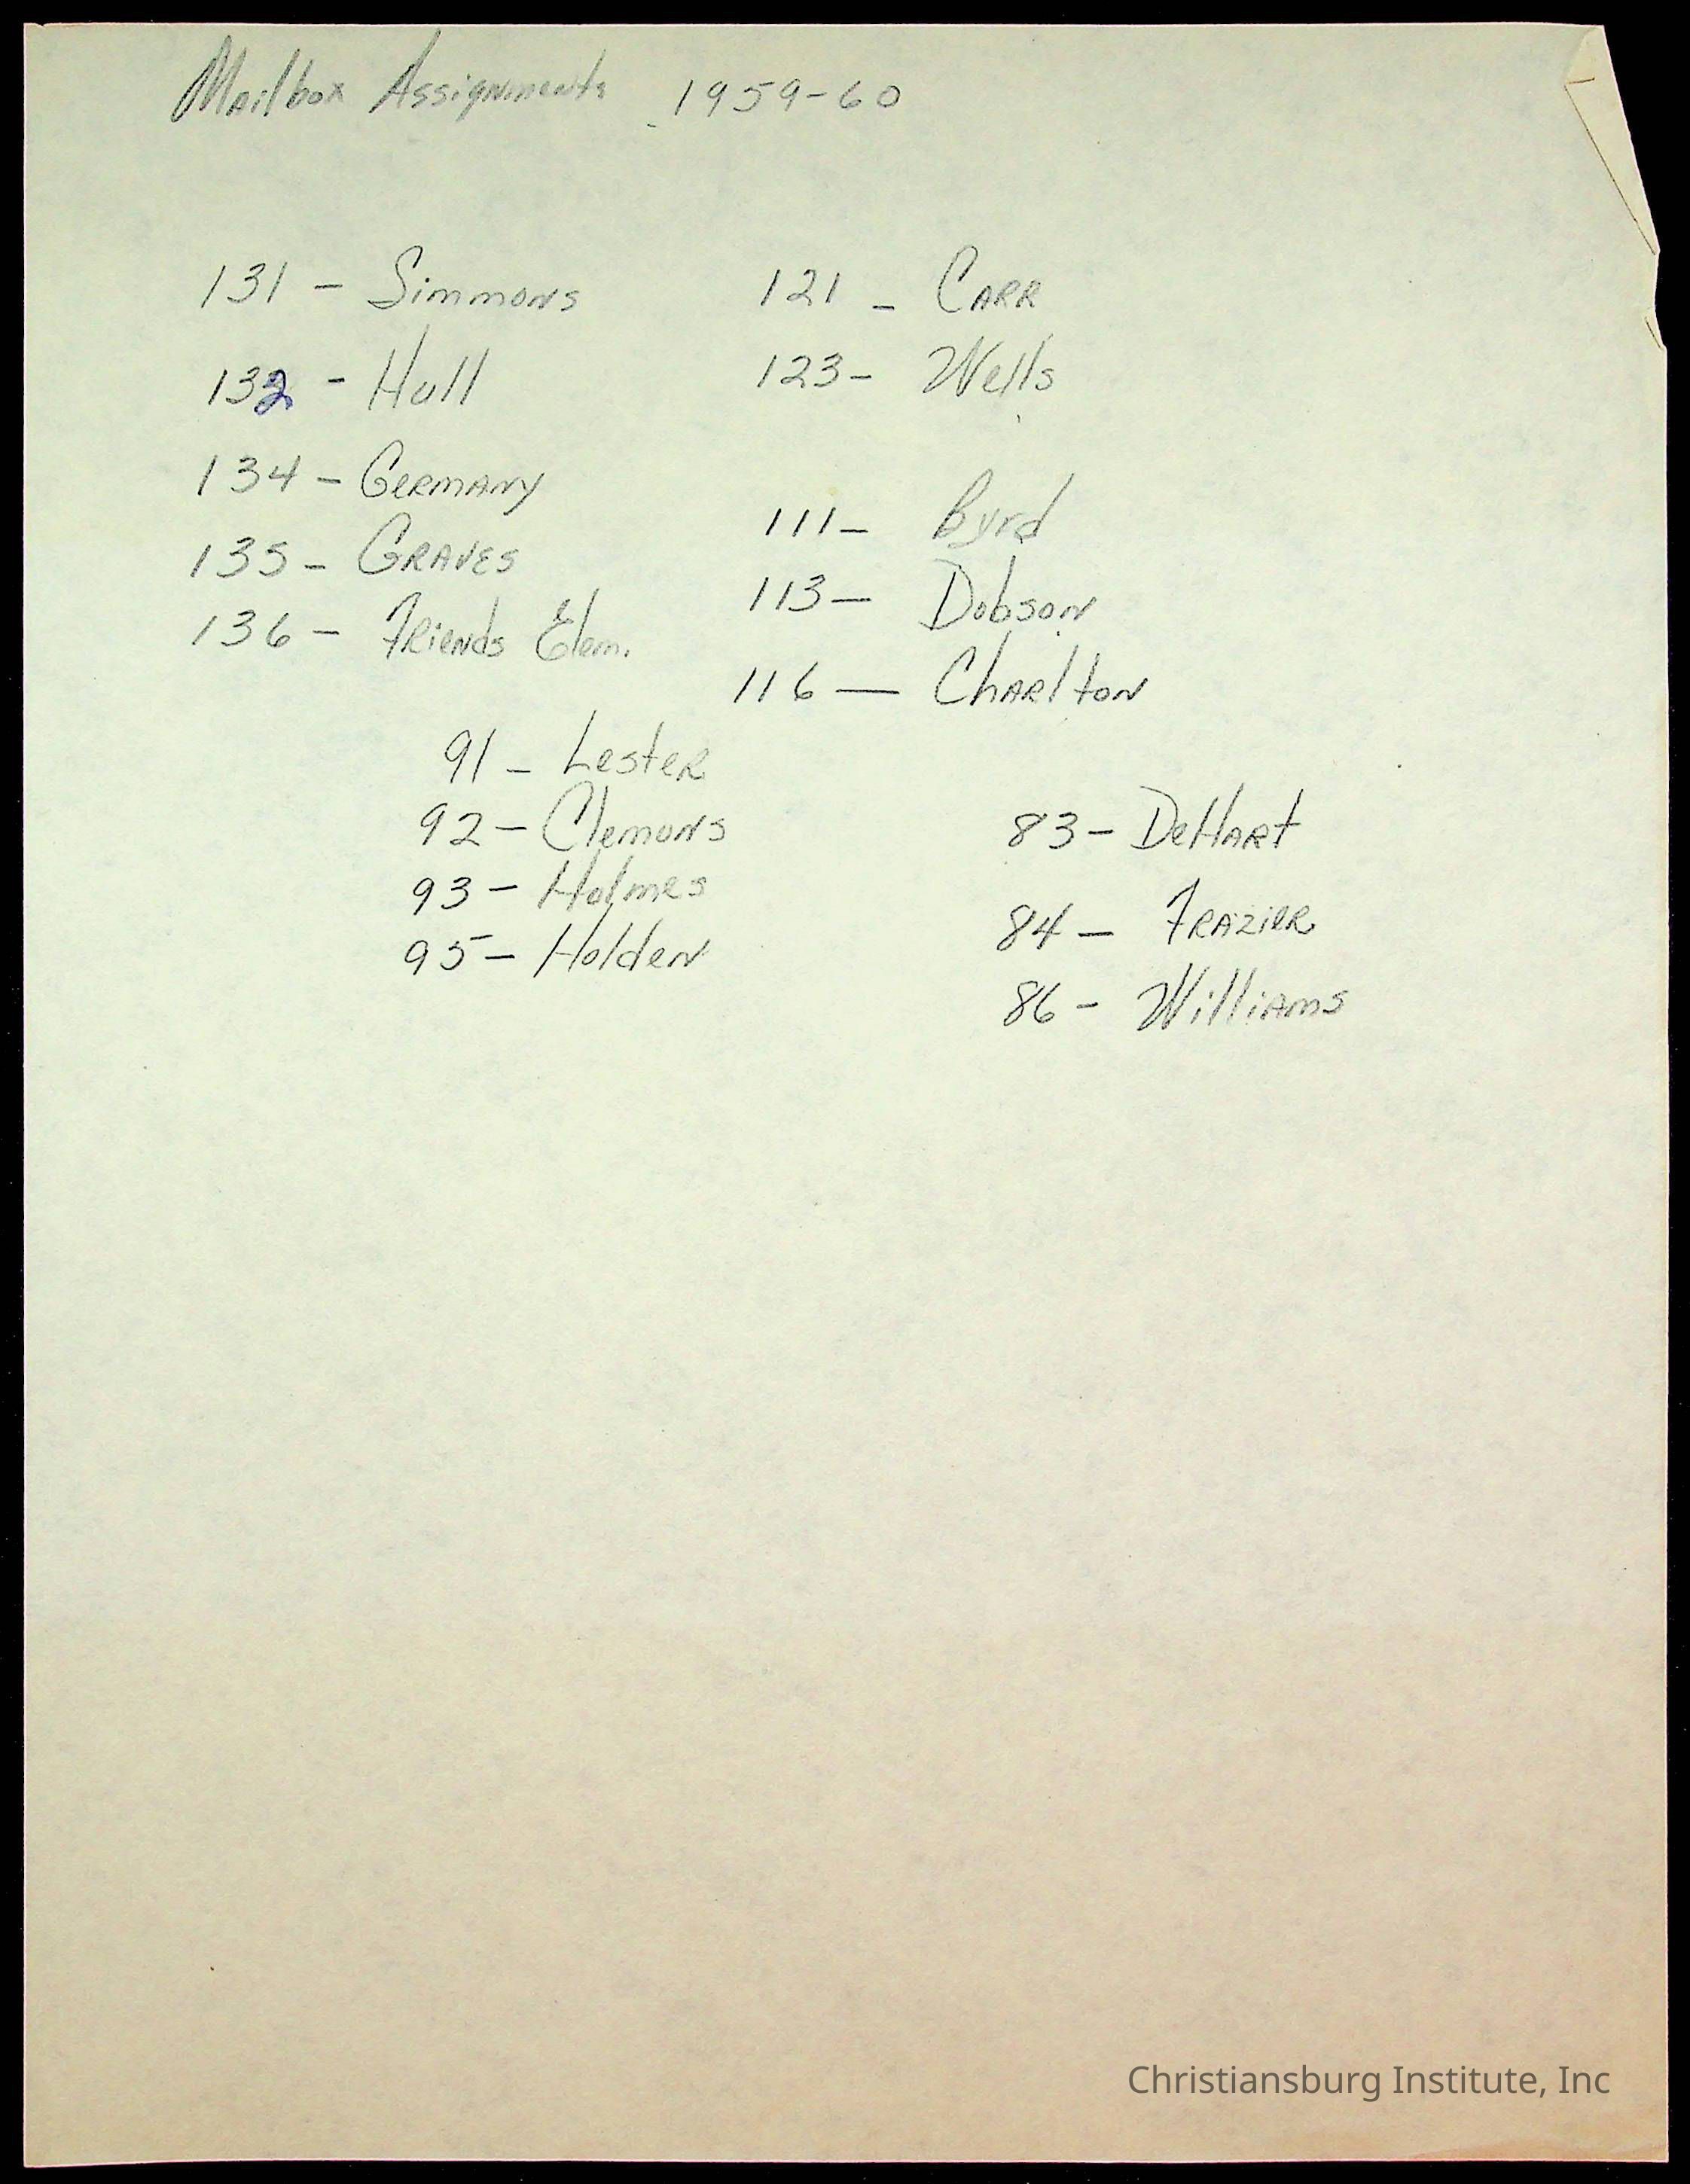 Mailbox Assignments 1959-60
131 - Simmons
132 - Hull
134 - Germany
135 - Graves
136 - Friends Elem.
121 - Carr
123 - Wells
111 - Byrd
113 - Dobson
116 - Charlton
91 - Lester
92 - Clemons
93 - Holmes
95 - Holden
83 - DeHart
84 - Frazier
86 - Williams
Christiansburg Institute, Inc